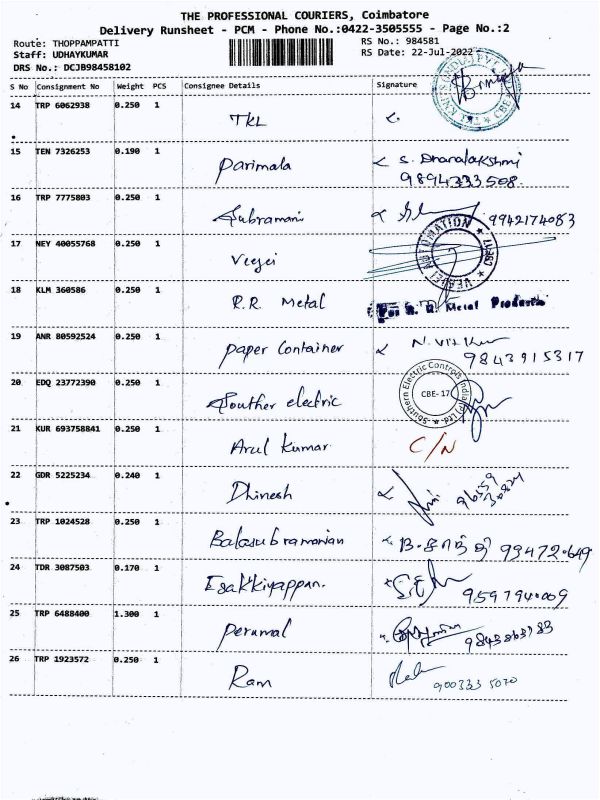 THE PROFESSIONAL COURIERS, Coimbatore
Delivery Runsheet - PCM - Phone No.:0422-3505555 - Page No.:2
Route: THOPPAMPATTI
RS No.: 984581
Staff: UDHAYKUMAR
RS Date: 22-Jul-2022
DRS No.: DCJB98458102
S No Consignment No Weight PCS Consignee Details Signature
14 TRP 6062938 0.250 1 TKL
15 TEN 7326253 0.190 1 Parimala S. Dhanalakshmi
9894333508
16 TRP 7775803 0.250 1 Subramani 9942174083
17 NEY 40055768 0.250 1 Veejei
AUTOMATION
18 KLM 360586 0.250 1 R.R. Metal For R. R. Metal Products
19 ANR 80592524 0.250 1 paper Container
9843915317
20 EDQ 23772390 0.250 1 Souther electric Southern Electric Controls India (P) Ltd.
CBE-17
21 KUR 693758841 0.250 1 Arul Kumar C/N
22 GDR 5225234 0.240 1 Dhinesh
23 TRP 1024528 0.250 1 Balasubramanian
24 TDR 3087503 0.170 1 Esakkiyappan.
25 TRP 6488400 1.300 1 Perumal
26 TRP 1923572 0.250 1 Ram
9003335070